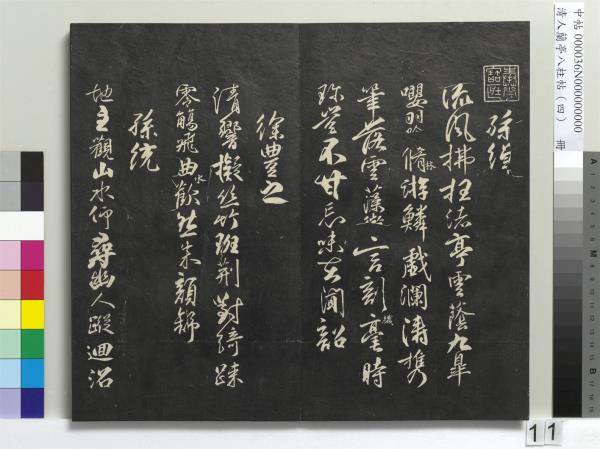 中帖 000036N000000000
清人蘭亭八柱帖（四） 冊
孫綽
流風拂枉渚亭雲蔭九皋
嚶羽吟脩林游鱗戲瀾濤攜
筆落雲藻微言剖纖毫時
珍豈不甘忘味在聞韶
徐豐之
清響擬絲竹班荊對綺疎
零觴飛曲水歡然朱顏舒
孫統
地主觀山水仰尋幽人蹤迴沼
11